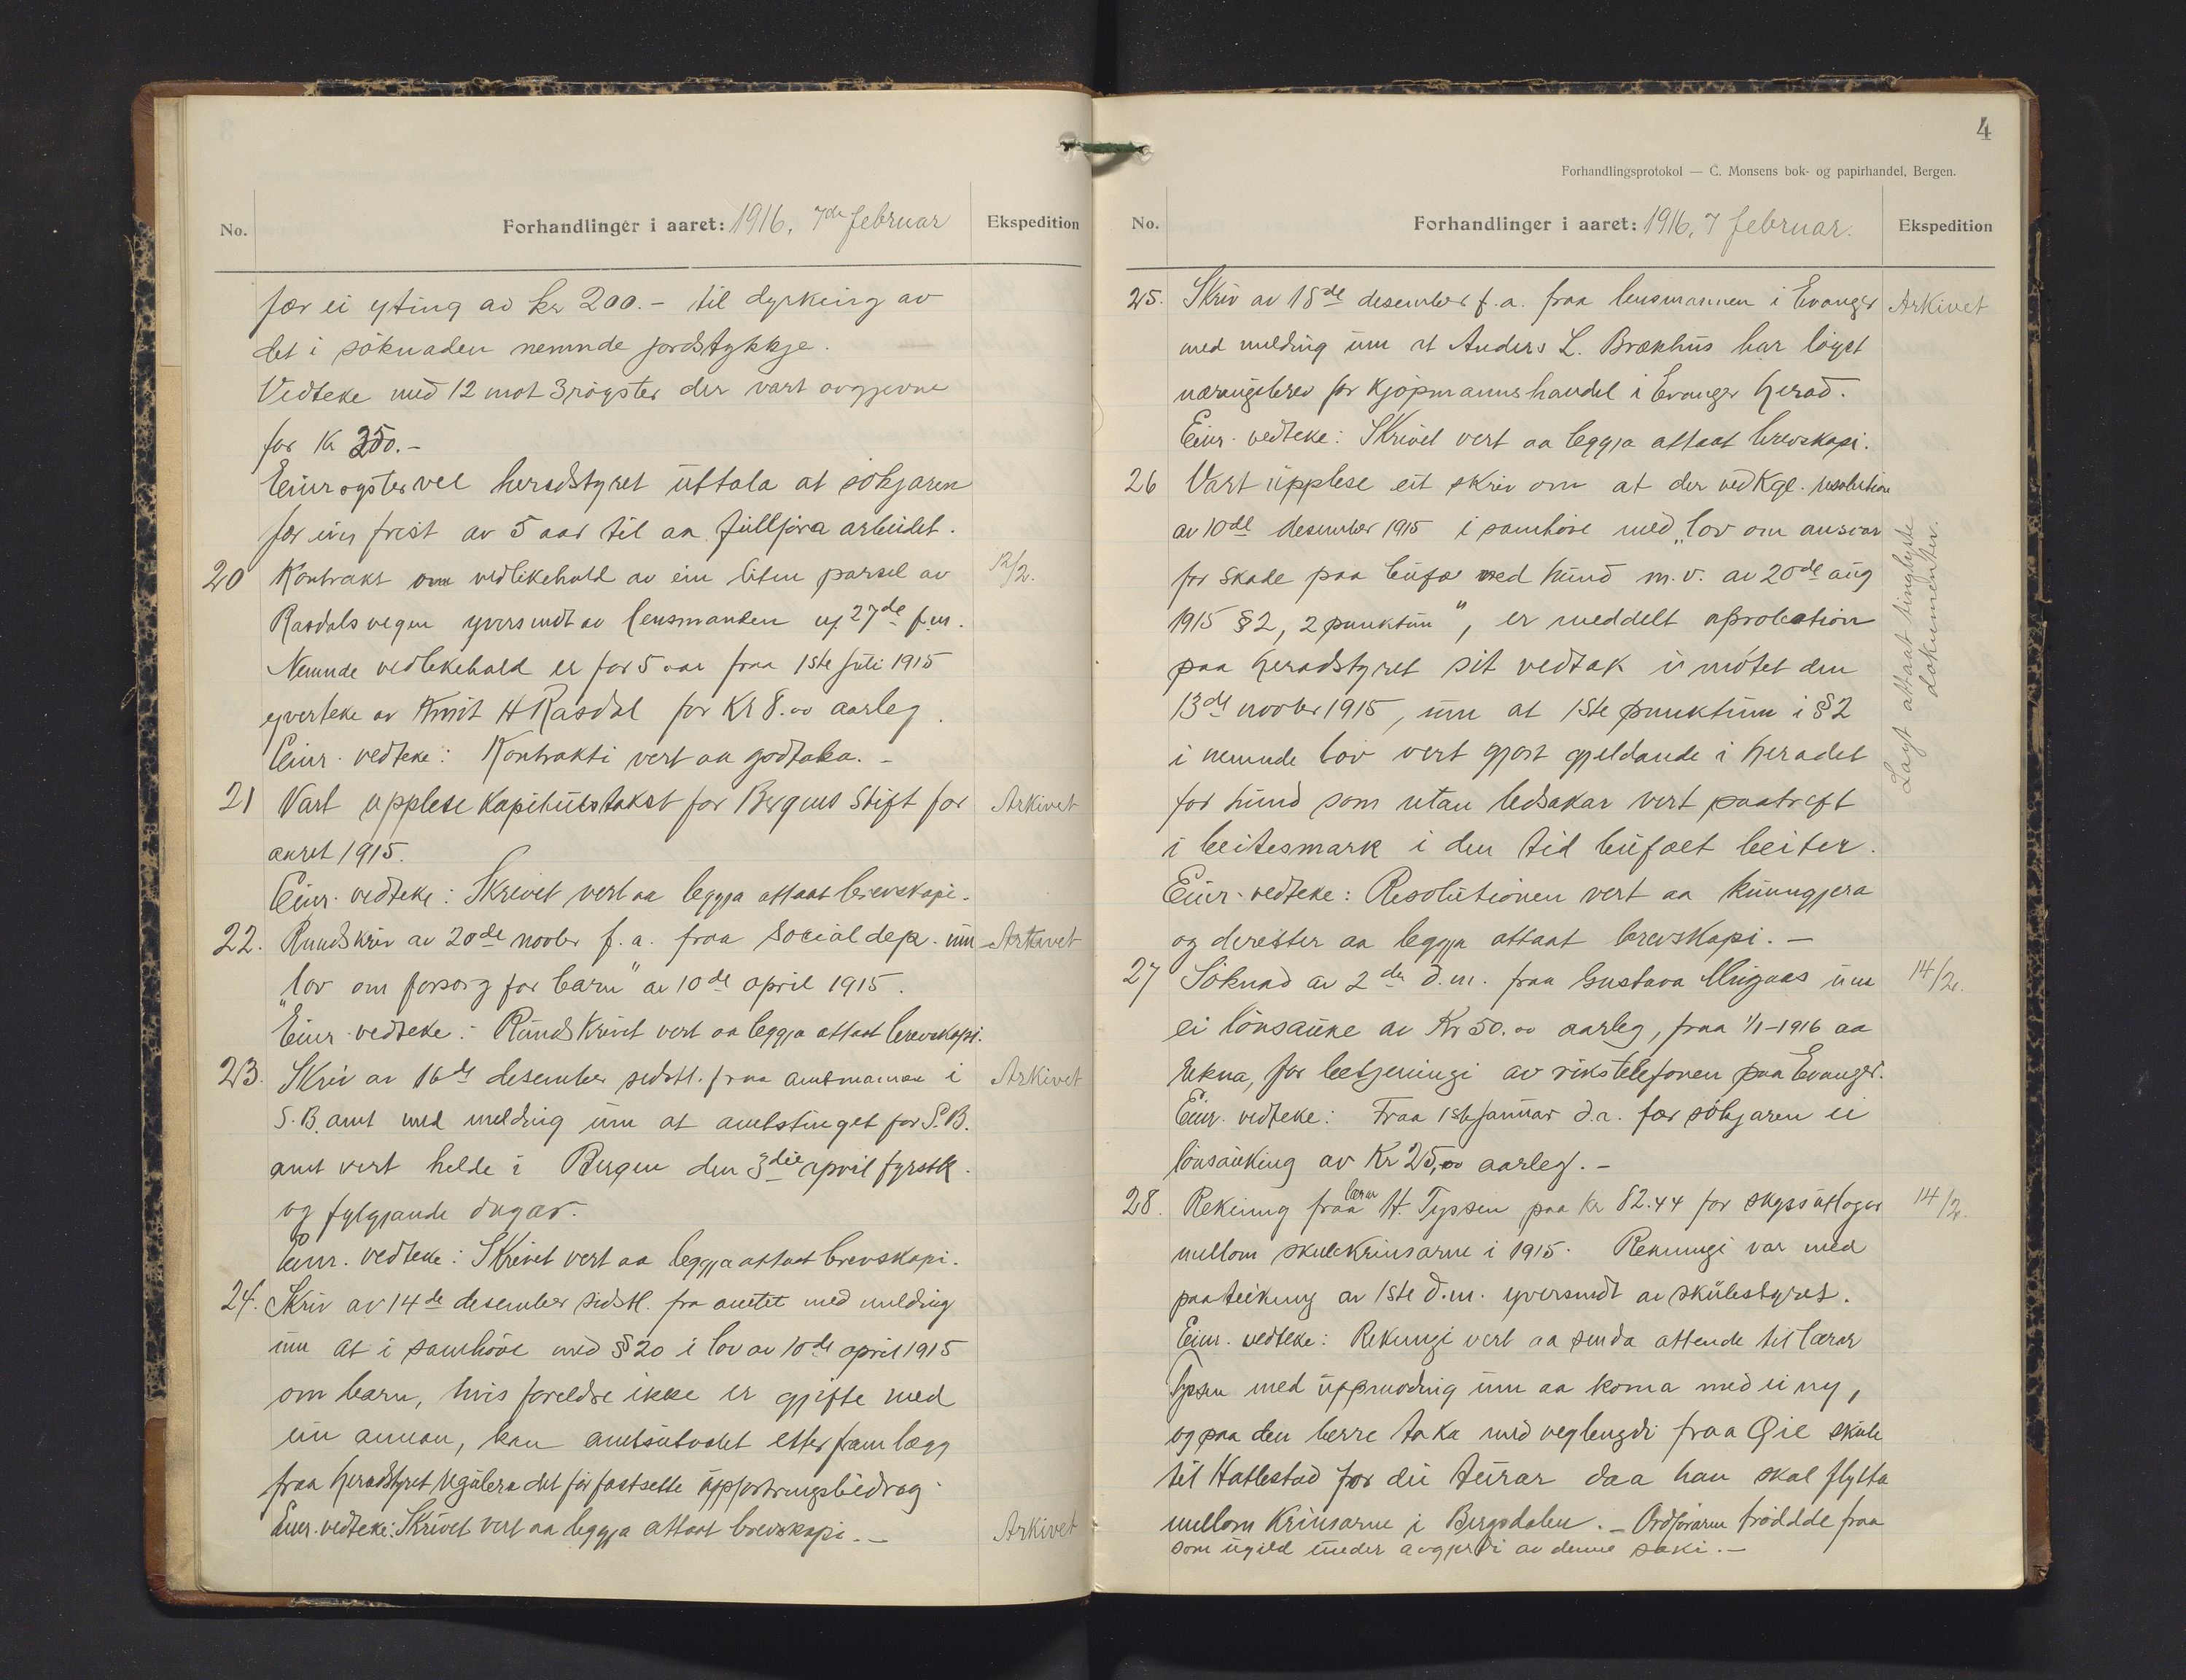 No.
Forhandlinger i aaret: 1916, 7de februar
Ekspedition
fær ei yting av kr 200.- til dyrking av
det i söknaden nemnde jordstykkje.
Vedteke med 12 mot 3 röyster der vart avgjevne
for Kr 350.-
Einröystes vel heradstyret uttala at sökjaren
fær ein frist av 5 aar til aa fullföra arbeidet.
20 Kontrakt om vedlikehald av ein liten parsel av 12/2.
Rasdalsvegen yversendt av lensmanden 27de f.m.
Nemnde vedlikehald er for 5 aar fraa 1ste juli 1915
yverteke av Knut H Rasdal for Kr 8.00 aarleg.
Einr. vedteke: Kontrakti vert aa godtaka. -
21 Vart upplese kapitulstakst for Bergens Stift for Arkivet
aaret 1915.
Einr. vedteke: Skrivet vert aa leggja attaat brevskapi.
22. Rundskriv av 20de novbr f.a. fraa Socialdep. um Arkivet
"lov om forsorg for barn" av 10de april 1915.
Einr. vedteke: Rundskrivet vert aa leggja attaat brevskapi.
23. Skriv av 16de desember sidstl. fraa amtmannen i Arkivet
S.B. amt med melding um at amtstinget for S.B.
amt vert helde i Bergen den 3die april fyrstk.
og fylgjande dagar.
Einr. vedteke: Skrivet vert aa leggja attaat brevskapi.
24. Skriv av 14de desember sidstl. fra amtet med melding
um at i samhöve med § 20 i lov av 10de april 1915
om barn, hvis foreldre ikke er gjifte med
ein annan, kan amtsutvalet etter framlegg
fraa heradstyret regulera det för fastsette uppfostringsbidrag.
Einr. vedteke: Skrivet vert aa leggja attaat brevskapi. - Arkivet
4
Forhandlingsprotokol — C. Monsens bok- og papirhandel, Bergen.
No.
Forhandlinger i aaret: 1916, 7 februar.
Ekspedition
25. Skriv av 18de desember f.a. fraa lensmannen i Evanger Arkivet
med melding um at Anders L. Brækhus har löyst
næringsbrev for kjöpmannshandel i Evanger herad.
Einr. vedteke: Skrivet vert aa leggja attaat brevskapi.
26 Vart upplese eit skriv om at der ved Kgl. resolution
av 10de desember 1915 i samhöve med "lov om ansvar
for skade paa bufæ ved hund m.v. av 20de aug
1915 § 2, 2 punktum", er meddelt aprobation
paa heradstyret sit vedtak i mötet den
13de novbr 1915, um at 1ste punktum i § 2
i nemnde lov vert gjort gjeldande i heradet
for hund som utan ledsakar vert paatreft
i beitesmark i den tid bufæet beiter.
Einr. vedteke: Resolutionen vert aa kunngjera
og deretter aa leggja attaat brevskapi. -
Lagt attaat tinglyste
dokumenter.
27 Söknad av 2de d.m. fraa Gustava um 14/2.
ei lönsauke av Kr 50.00 aarleg, fraa 1/1-1916 aa
rekna, for betjeningi av rikstelefonen paa Evanger.
Einr. vedteke: Fraa 1ste januar d.a. fær sökjaren ei
lönsauking av Kr 25,00 aarleg. -
28. Rekning fraa lærar H. Tyssen paa kr 82.44 for skyssutlogur 14/2.
millom skulekrinsarne i 1915. Rekningi var med
paateikning av 1ste d.m. yversendt av skulestyret.
Einr. vedteke: Rekningi vert aa senda attende til lærar
Tyssen med uppmoding um aa koma med ei ny,
og paa den berre taka med veglengdi fraa Gil skule
til Hatlestad for dei turar daa han skal flytta
millom krinsarne i Bergsdalen. - Ordföraren trödde fraa
som ugild under avgjerdi av denne saki. -